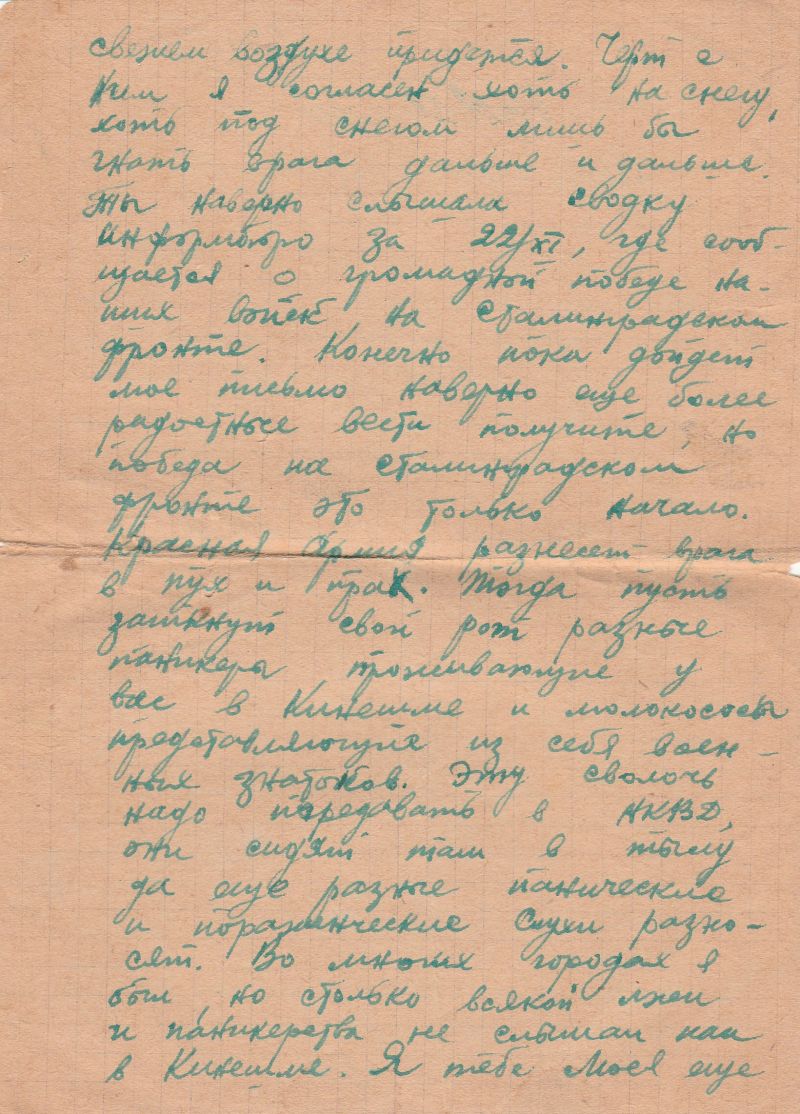 свежем воздухе придется. Черт с
ним я согласен хоть на снегу,
хоть под снегом лишь бы
гнать врага дальше и дальше.
Ты наверно слышала сводку
Информбюро за 22/XI, где сооб-
щается о громадной победе на-
ших войск на Сталинградском
фронте. Конечно пока дойдет
мое письмо наверно еще более
радостные вести получите, но
победа на Сталинградском
фронте это только начало.
Красная Армия разнесет врага
в пух и прах. Тогда пусть
заткнут свой рот разные
паникеры проживающие у
вас в Кинешме и молокососы
представляющие из себя воен-
ных знатоков. Эту сволочь
надо передавать в НКВД,
они сидят там в тылу
да еще разные панические
и пораженческие слухи разно-
сят. Во многих городах я
был, но столько всякой лжи
и паникерства не слышал как
в Кинешме. Я тебе Моея еще